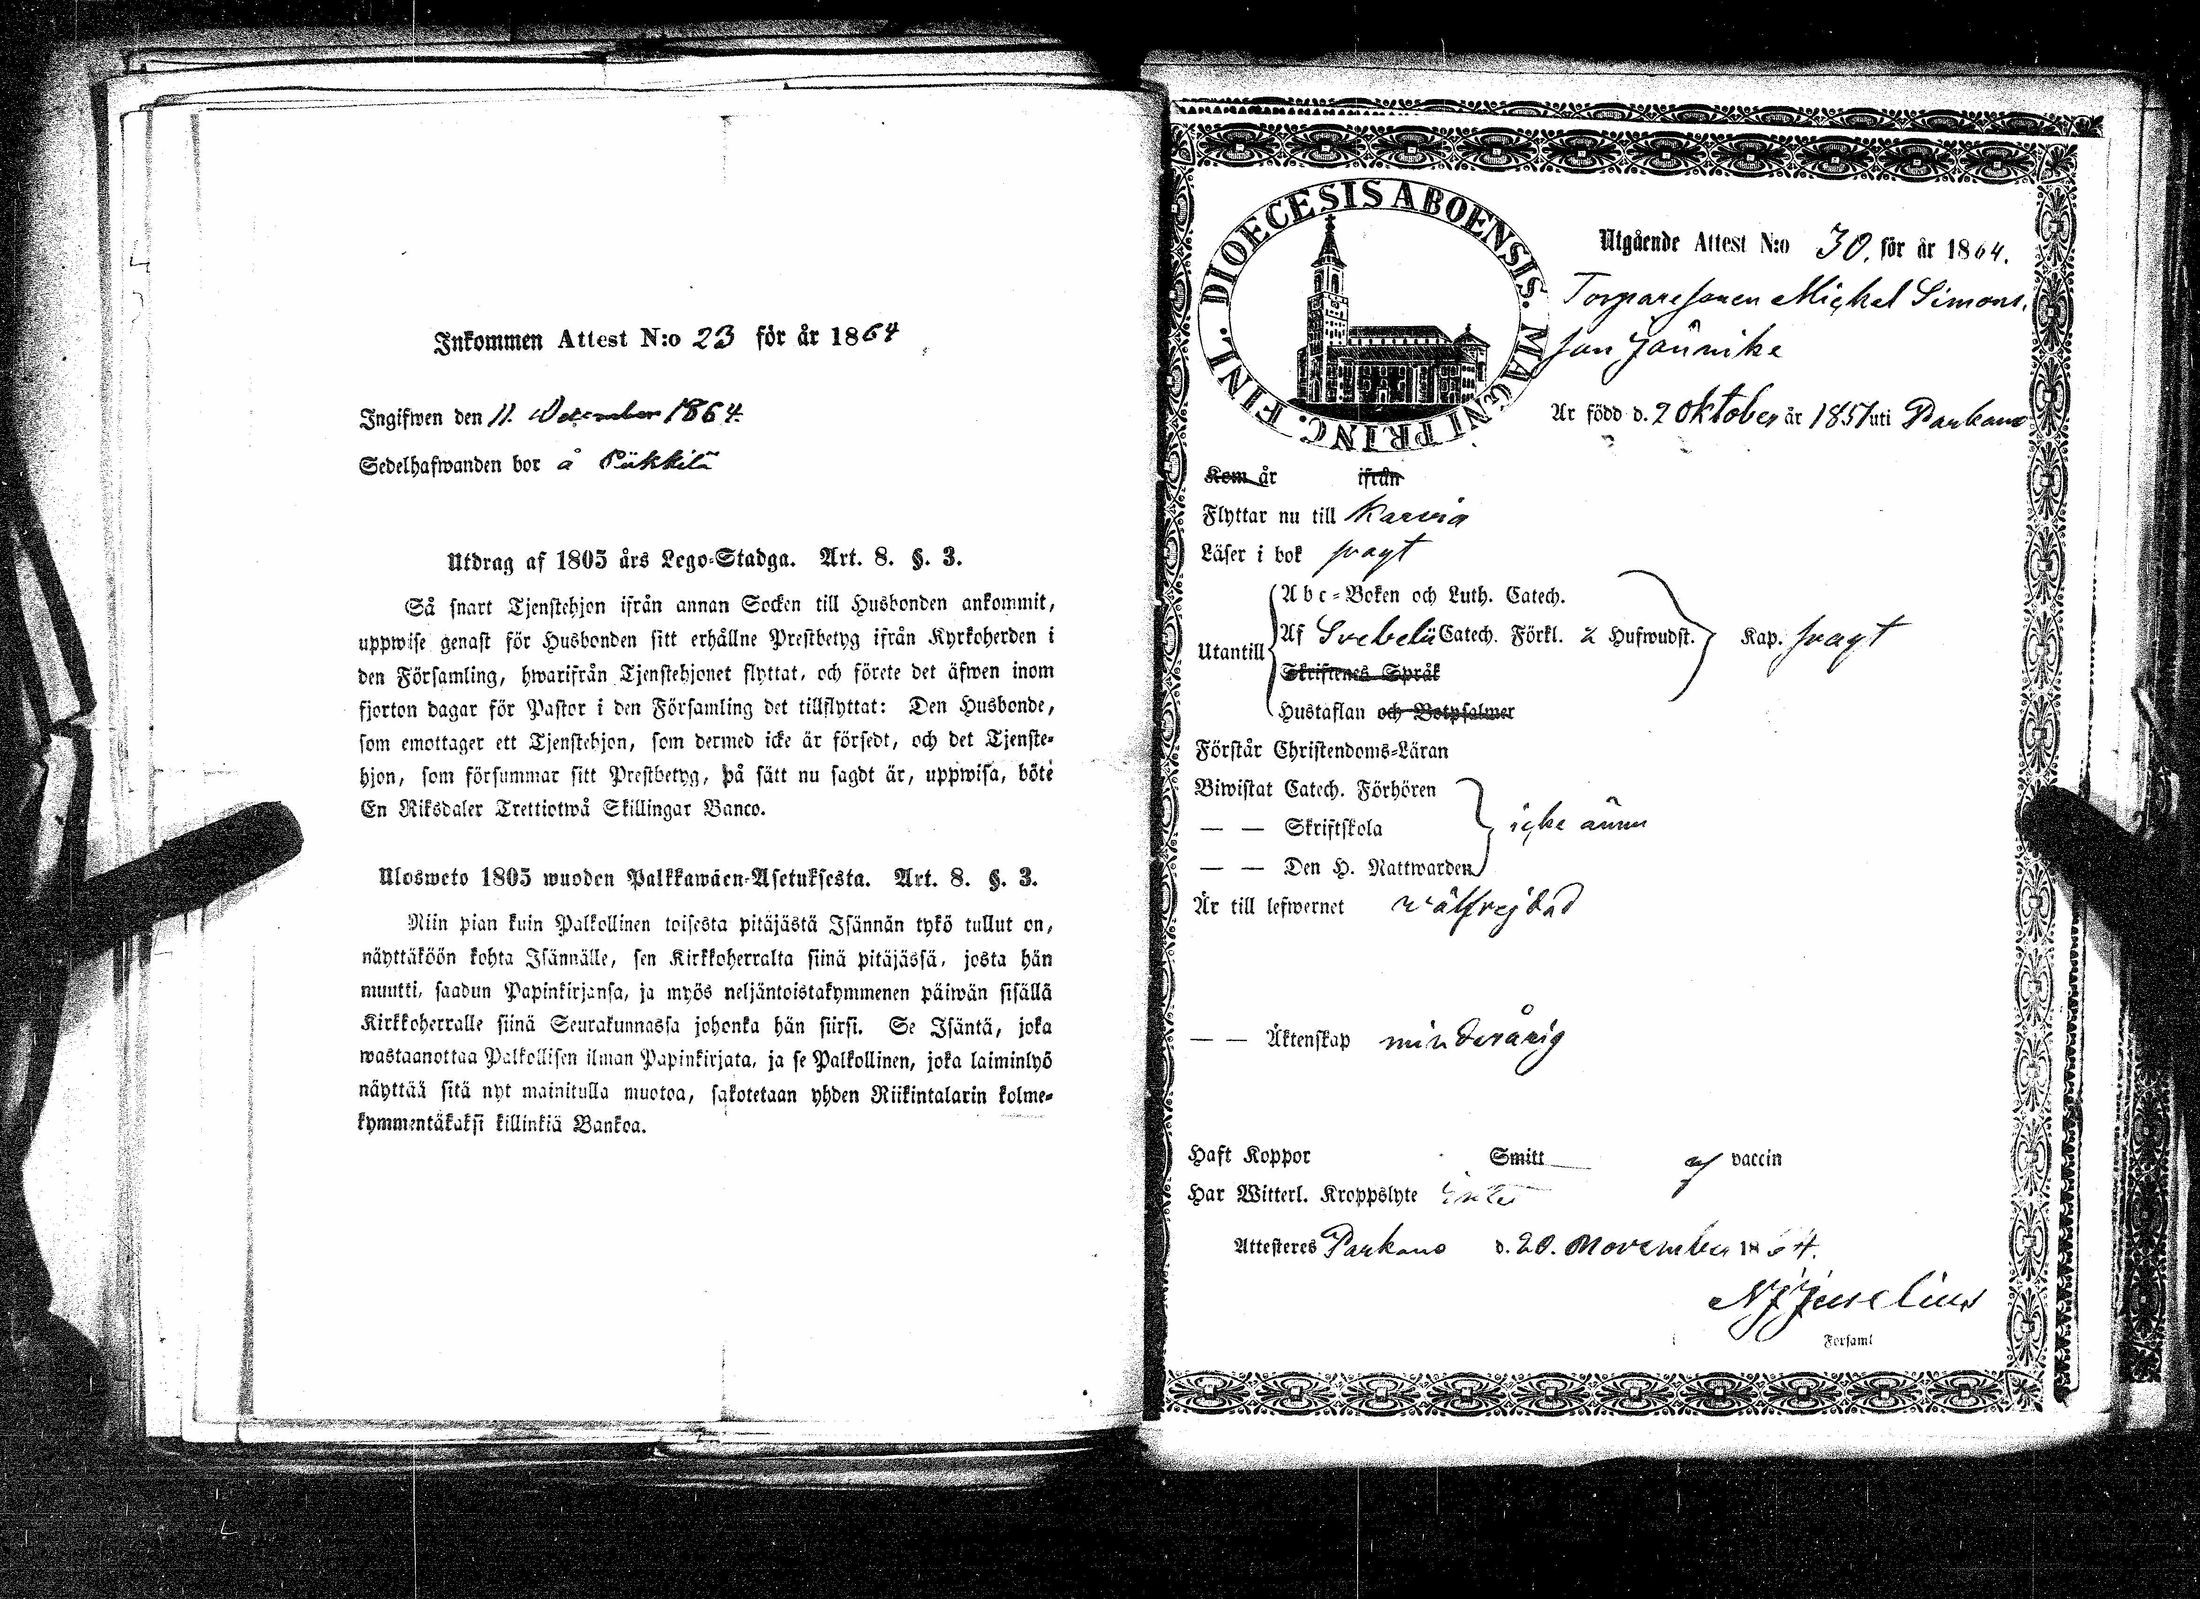 Inkommen Attest N:o 23 för år 1864
Ingifwen den 11. December 1864.
Sedelhafwanden bor å Pükkilä
Utdrag af 1805 års Lego-Stadga. Art. 8. §. 3.
Så snart Tjenstehjon ifrån annan Socken till Husbonden ankommit,
uppwise genast för Husbonden sitt erhållne Prestbetyg ifrån Kyrkoherden i
den Församling, hwarifrån Tjenstehjonet flyttat, och förete det äfwen inom
fjorton dagar för Pastor i den Församling det tillflyttat: Den Husbonde,
som emottager ett Tjenstehjon, som dermed icke är försedt, och det Tjenste-
hjon, som försummar sitt Prestbetyg, på sätt nu sagdt är, uppwisa, böte
En Riksdaler Trettiotwå Skillingar Banco.
Ulosweto 1805 wuoden Palkkawäen-Asetuksesta. Art. 8. §. 3.
Niin pian kuin Palkollinen toisesta pitäjästä Isännän tykö tullut on,
näyttäköön kohta Isännälle, sen Kirkkoherralta siinä pitäjässä, josta hän
muutti, saadun Papinkirjansa, ja myös neljäntoistakymmenen päiwän sisällä
Kirkkoherralle siinä Seurakunnassa johonka hän siirsi. Se Isäntä, joka
wastaanottaa Palkollisen ilman Papinkirjata, ja se Palkollinen, joka laiminlyö
näyttää sitä nyt mainitulla muotoa, sakotetaan yhden Riikintalarin kolme-
kymmentäkaksi killinkiä Bankoa.
FINL. DIOECESIS ABOENSIS. MAGNI PRINC.
Utgående Attest N:o 30. för år 1864.
Torparesonen Michel Simons.
son Jännike
Är född d. 2 Oktober år 1851 uti Parkano
Kom år ifrån
Flyttar nu till Karvia
Läser i bok svagt
Utantill
Abc-Boken och Luth. Catech.
Af Svebelii Catech. Förkl. 2 Hufwudst. Kap. svagt
Skriftenes Språk
Hustaflan och Botpsalmer
Förstår Christendoms-Läran
Biwistat Catech. Förhören
— — Skriftskola icke ännu
— — Den H. Nattwarden
Är till lefwernet wälfrejdad
— — Äktenskap minderårig
Haft Koppor Smitt af vaccin
Har Witterl. Kroppslyte intet
Attesteres Parkano d. 20. November 1864.
N J Juselius
Forsaml